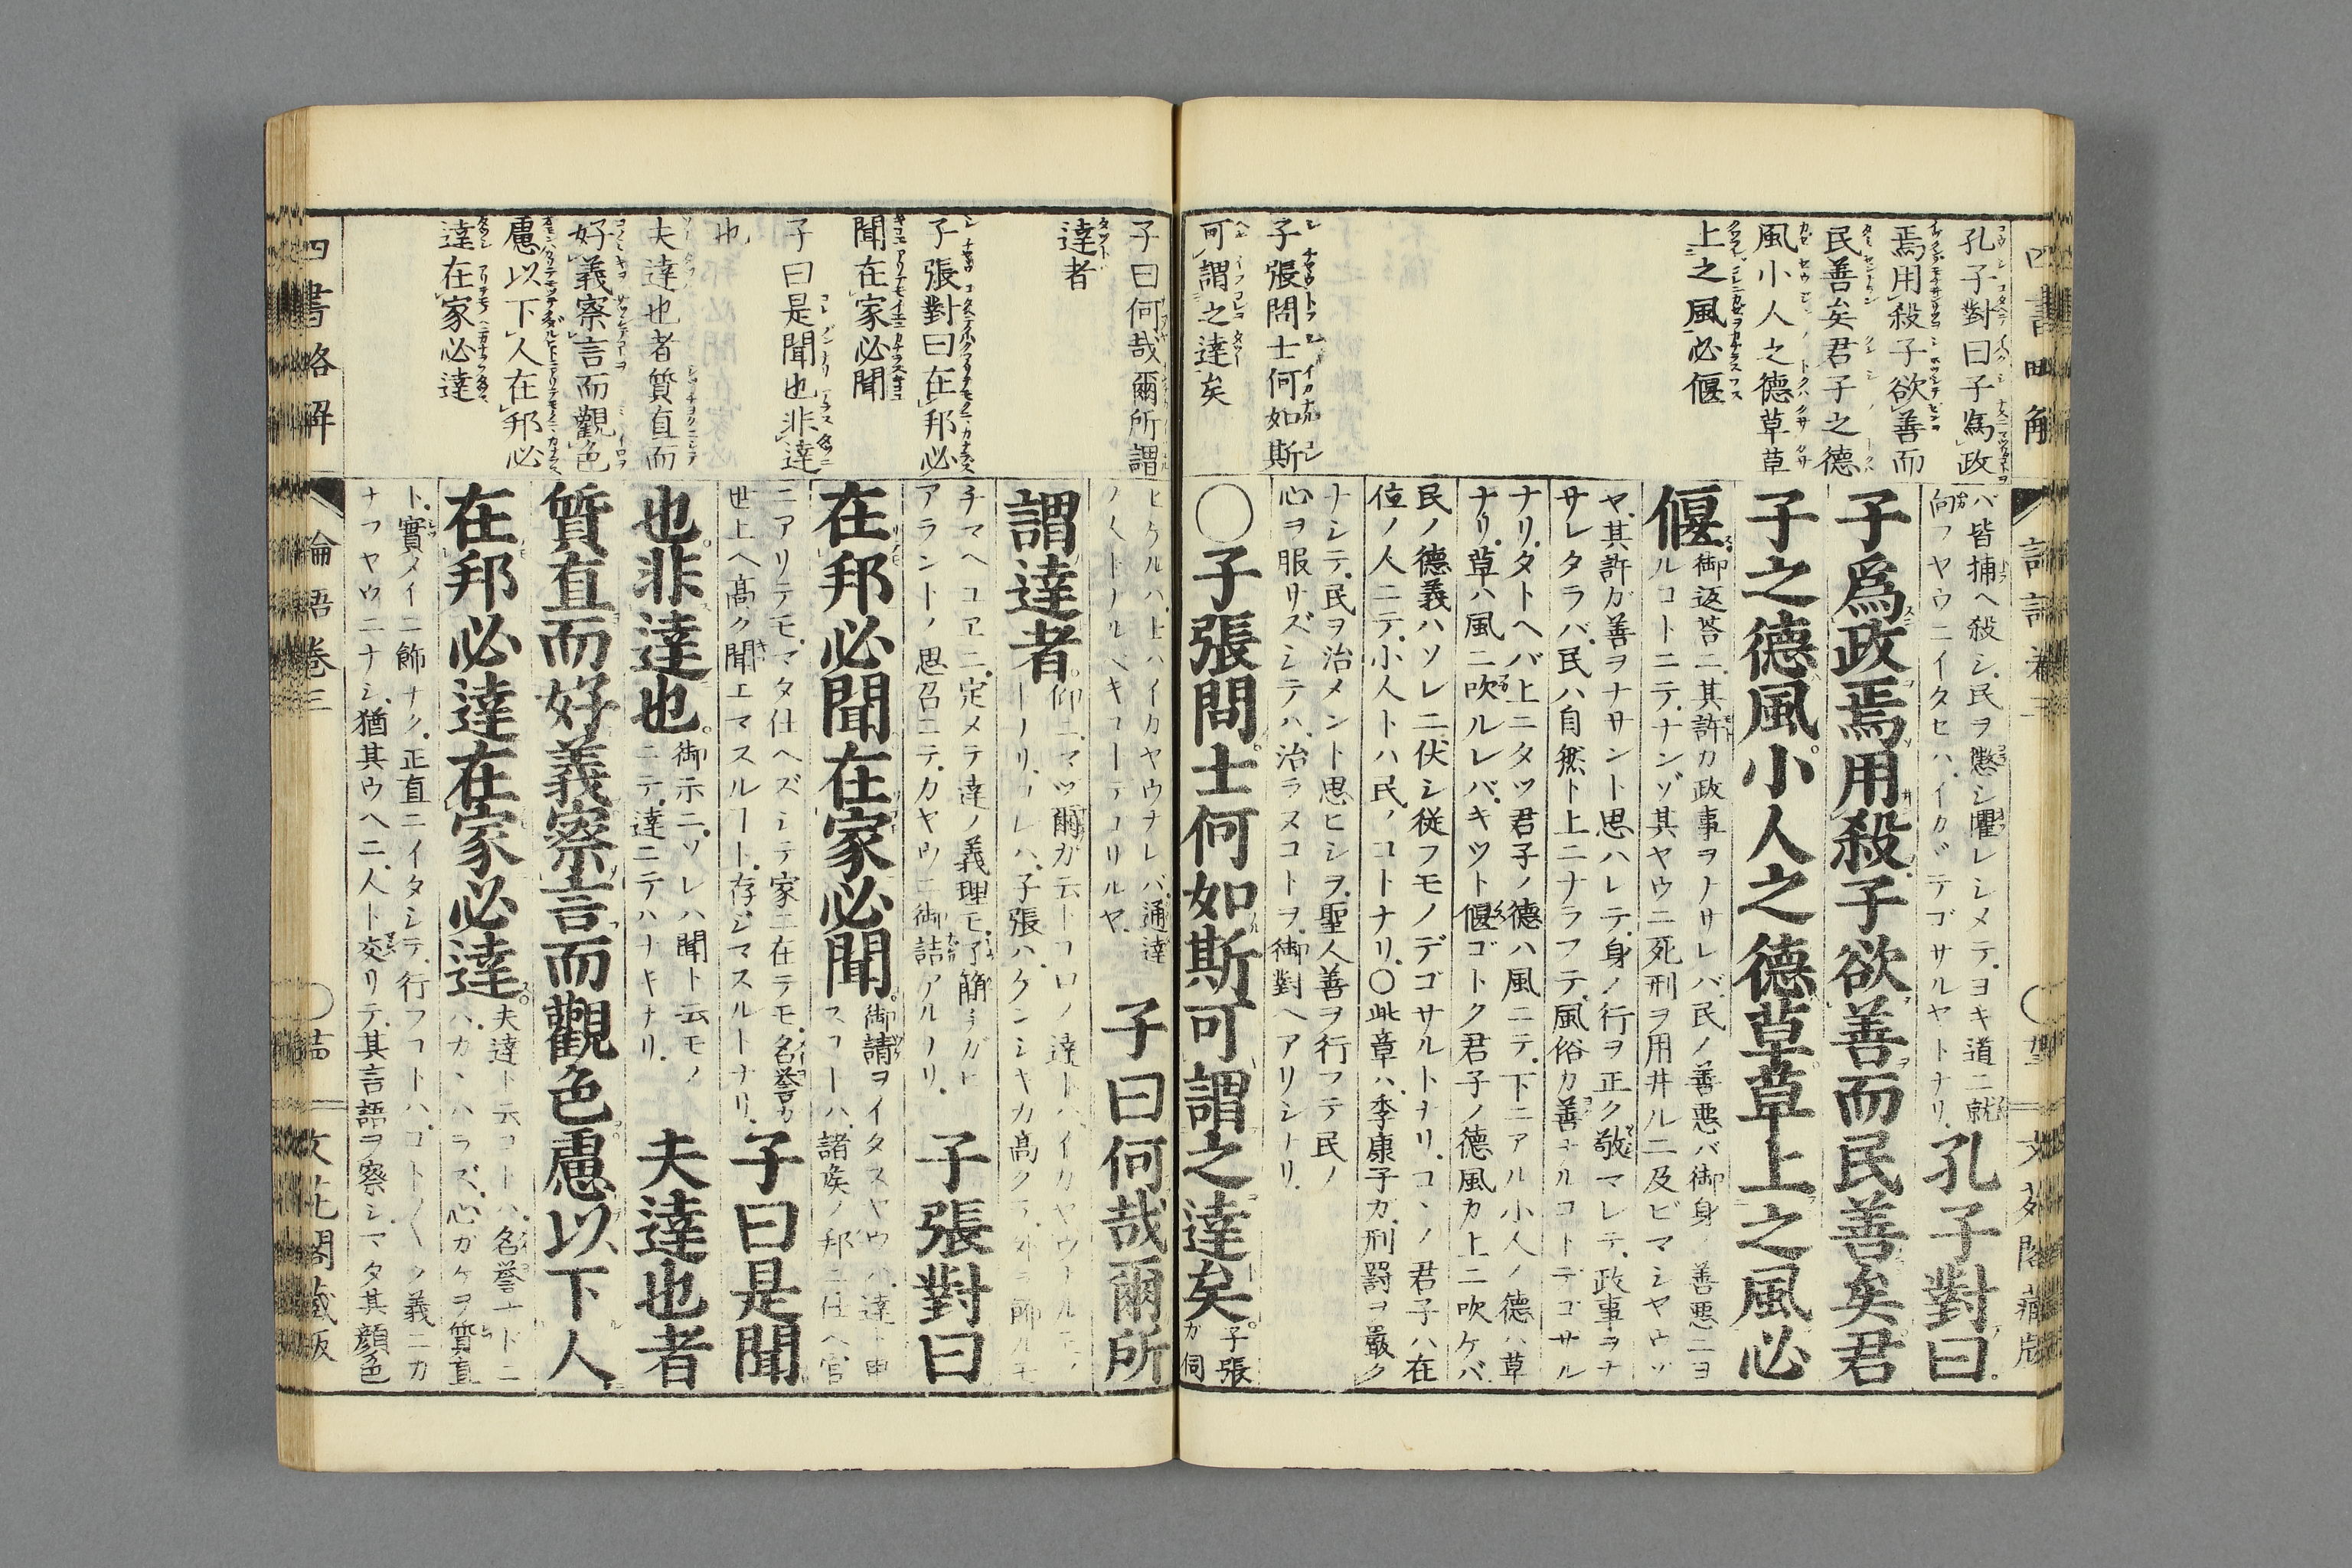 孔子對曰子爲政
焉用殺子欲善而
民善矣君子之德
風小人之德草草
上之風必偃
子張問士何如斯
可謂之達矣
バ皆捕ヘ殺シ民ヲ懲シ懼レシメテヨキ道ニ就
向フヤウニイタセハイカヾテゴサルヤトナリ
孔子對曰
子爲政焉用殺子欲善而民善矣君
子之德風小人之德草草上之風必
偃
御返荅ニ其許カ政事ヲナサレバ民ノ善悪バ御身ノ善悪ニヨ
ルコトニテナンゾ其ヤウニ死刑ヲ用井ルニ及ビマシヤウゾ
ヤ其許ガ善ヲナサント思ハレテ身ノ行ヲ正ク敬マレテ政事ヲナ
サレタラバ民ハ自然ト上ニナラフテ風俗カ善ナルコトデゴサル
ナリタトヘバ上ニタツ君子ノ德ハ風ニテ下ニアル小人ノ德ハ草
ナリ草ハ風ニ吹ルレバキット偃ゴトク君子ノ德風カ上ニ吹ケバ
民ノ德義ハソレニ伏シ従フモノデゴサルトナリコヽノ君子ハ在
位ノ人ニテ小人トハ民ノコトナリ〇此章ハ季康子カ刑罰ヲ嚴ク
ナシテ民ヲ治メント思ヒシヲ聖人善ヲ行フテ民ノ
心ヲ服サズシテハ治ラヌコトヲ御對ヘアリシナリ
〇子張問士何如斯可謂之達矣
子張
カ伺
子曰何哉爾所謂
達者
子張對曰在邦必
聞在家必聞
子曰是聞也非達
也
夫達也者質直而
好義察言而觀色
慮以下人在邦必
達在家必達
ヒケルハ士ハイカヤウナレバ通達
子曰何哉爾所
謂達者
子張對曰
在邦必聞在家必聞
御請ヲイタスヤウハ達ト申
スコトハ諸矦ノ邦ニ仕ヘ官
ニアリテモマタ仕ヘズシテ家ニ在テモ名誉カ
世上ヘ髙ク聞エマスルコトト存ジマスルトナリ
子曰是聞
也非達也
御示ニソレハ聞ト云モノ
ニテ達ニテハナキナリ
夫達也者
質直而好義察言而觀色慮以下人
在邦必達在家必達
夫達ト云コトハ名誉ナドニ
ハカヽハラズ心ガケヲ質直
ト實メイニ飾ナク正直ニイタシテ行フコトハコト〴〵ク義ニカ
ナフヤウニナシ猶其ウヘニ人ト交リテ其言語ヲ察シマタ其顔色
四書略解
論語卷三